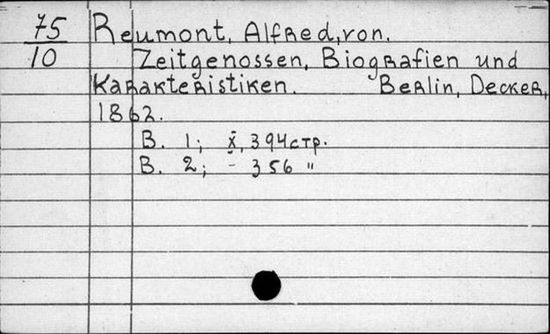 75 Reumont, Alfred, von.
10 Zeitgenossen, Biografien und
Karakteristiken. Berlin, Decker,
1862.
B. 1; X, 394 стр.
B. 2; - 356 "